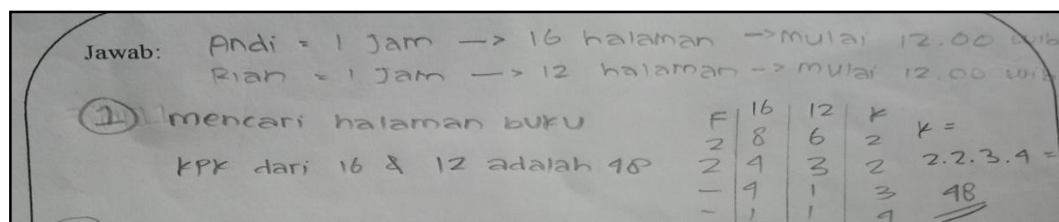 Jawab:
Andi = 1 Jam –> 16 halaman –> mulai 12.00 wib
Rian = 1 Jam –> 12 halaman –> mulai 12.00 wib
1 mencari halaman buku
KPK dari 16 & 12 adalah 48
F 16 12 K
2 8 6 2
2 4 3 2
– 4 1 3
– 1 1 4
K =
2.2.3.4 =
48